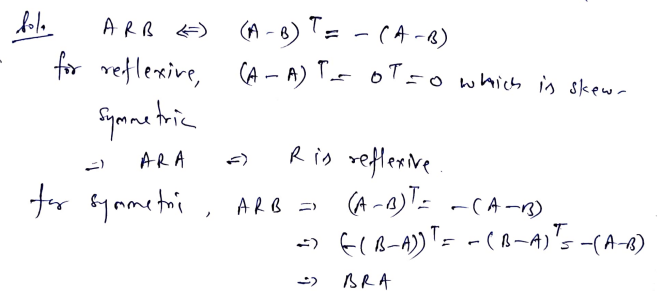 Sol. A R B ⇔ (A - B)ᵀ = - (A - B)
for reflexive, (A - A)ᵀ = 0ᵀ = 0 which is skew-
symmetric
⇒ A R A ⇒ R is reflexive.
for symmetric, A R B ⇒ (A - B)ᵀ = - (A - B)
⇒ (-(B - A))ᵀ = - (B - A)ᵀ = - (A - B)
⇒ B R A